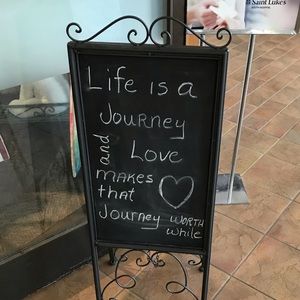 Saint Luke's
Life is a
Journey
and Love
makes
that
Journey worth
while